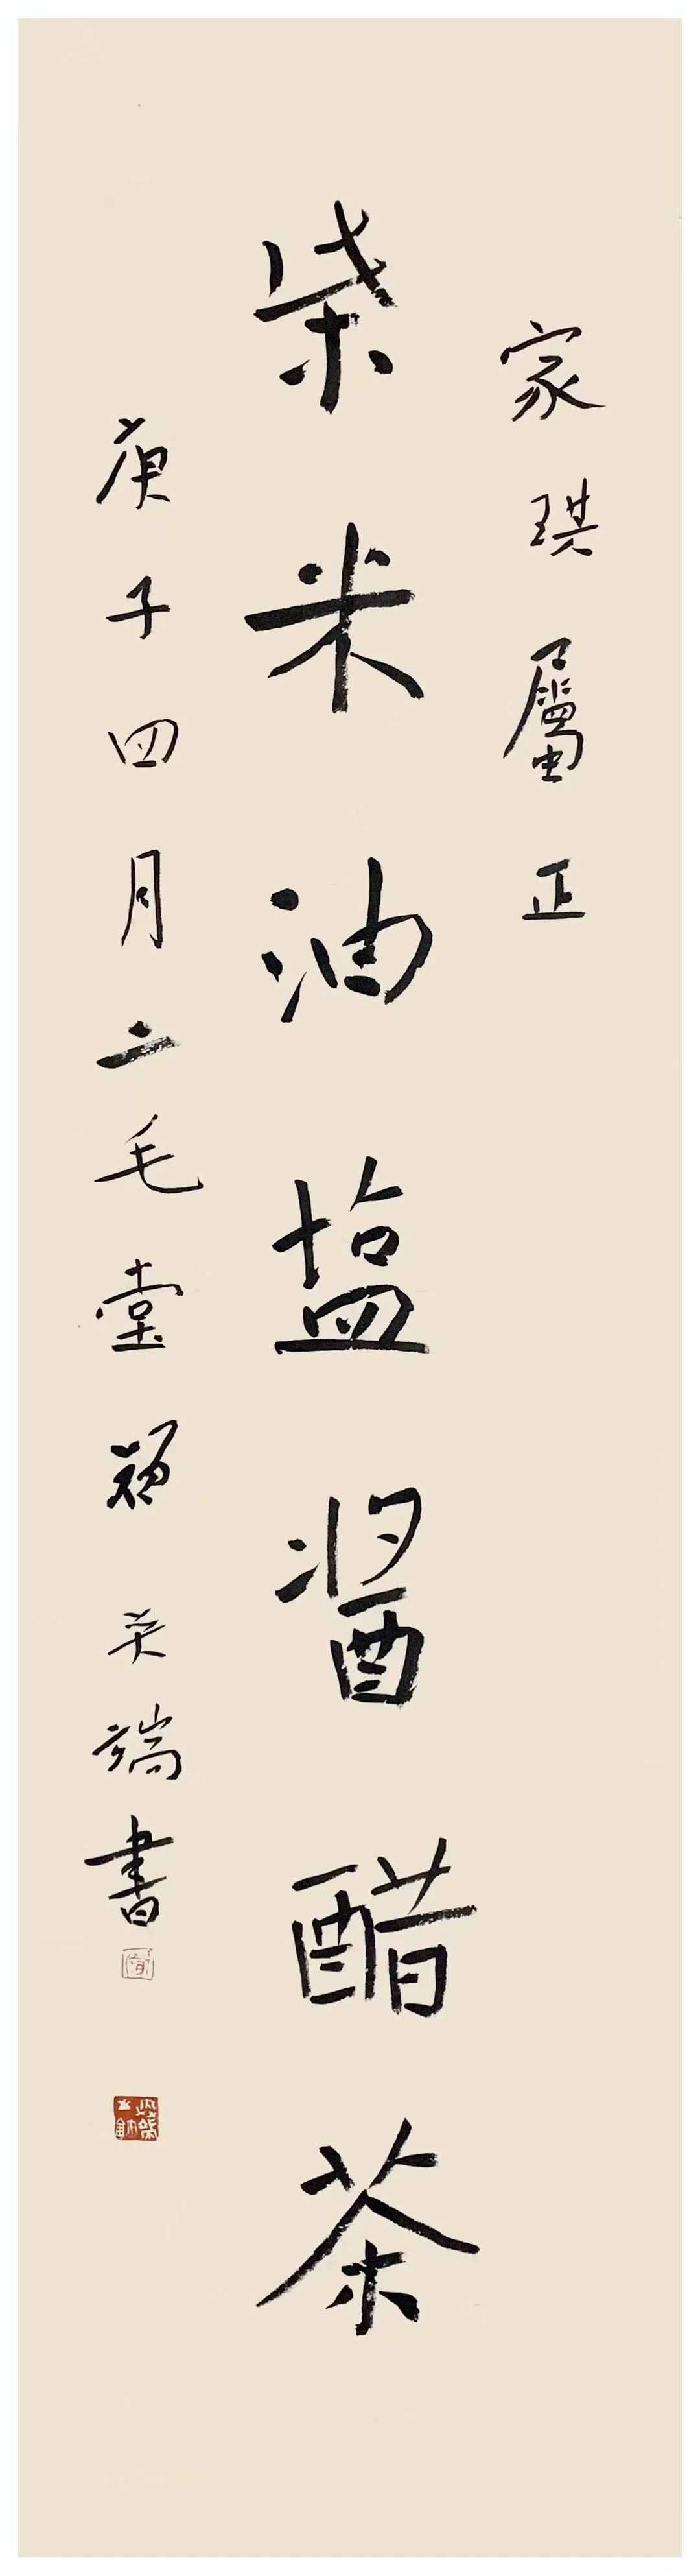 家琪屬正
柴米油塩醤醋茶
庚子四月二毛堂顧夫端書